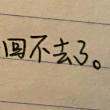 回不去了。